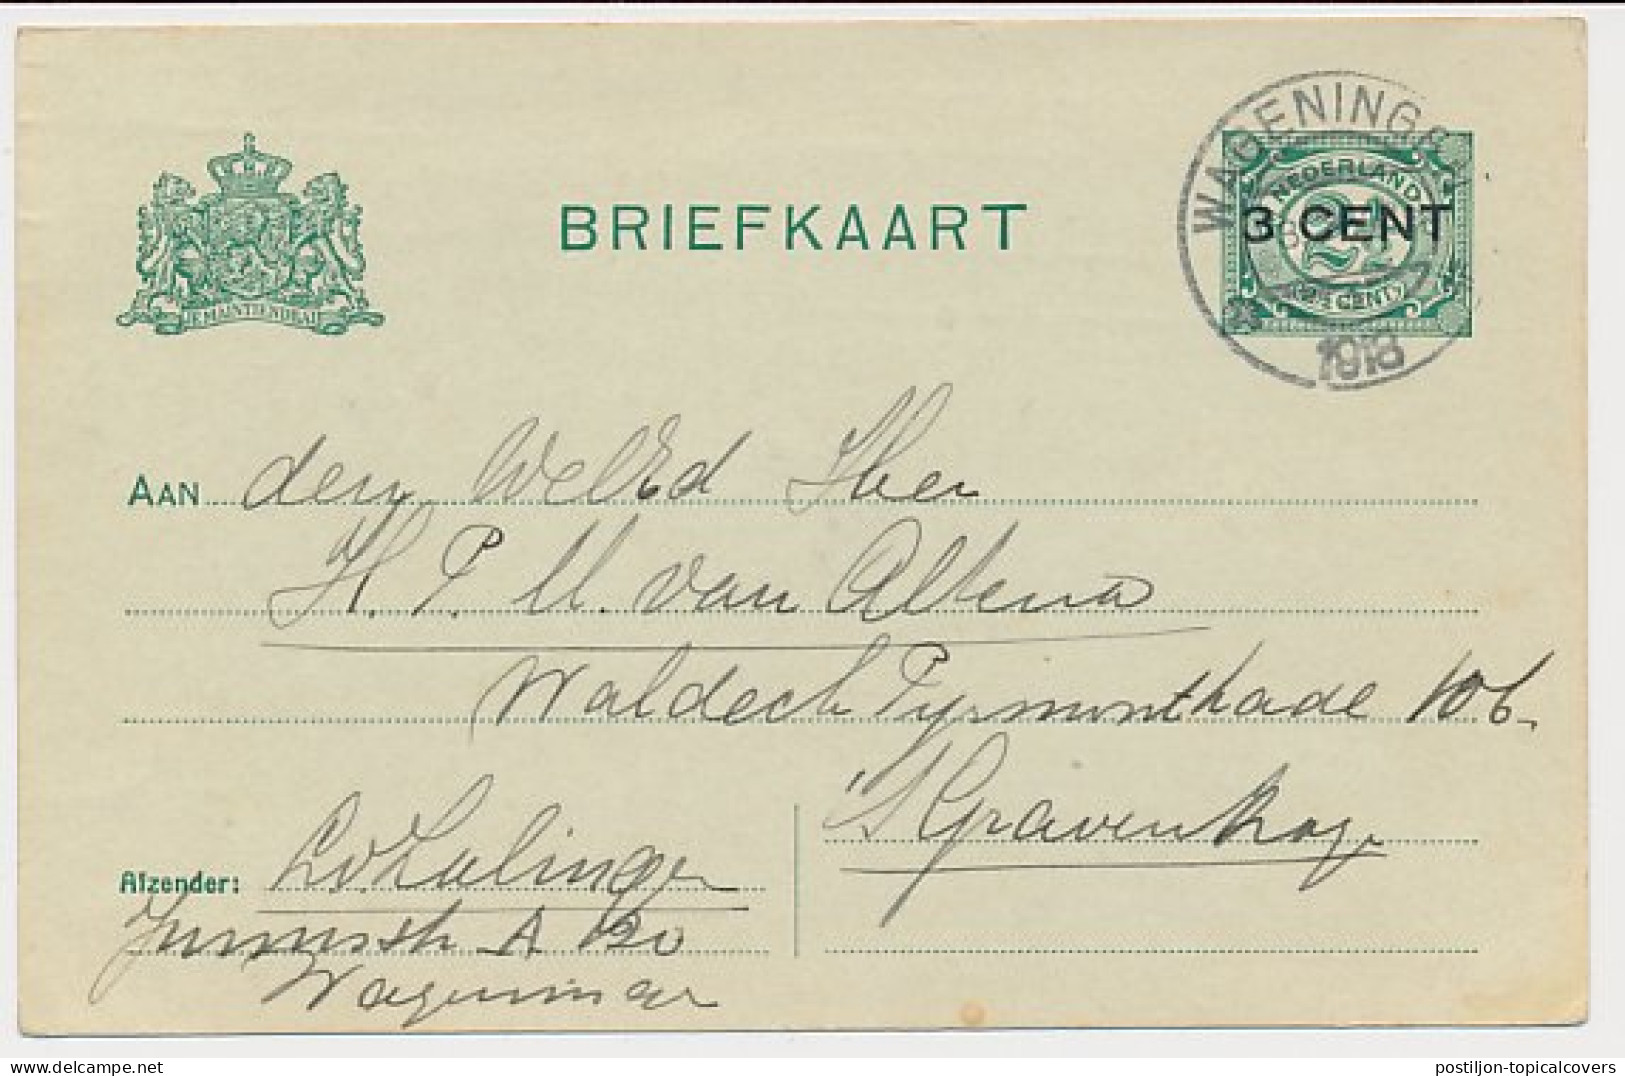 WAGENINGEN
1918
NEDERLAND
3 CENT
2½
2½ CENT
BRIEFKAART
JE MAINTIENDRAI
AAN den WelEd Heer
H. P. M. van Altena
Waldeck Pyrmontkade 106.
's Gravenhage
Afzender:
A 120
Wageningen
postiljon-topicalcovers